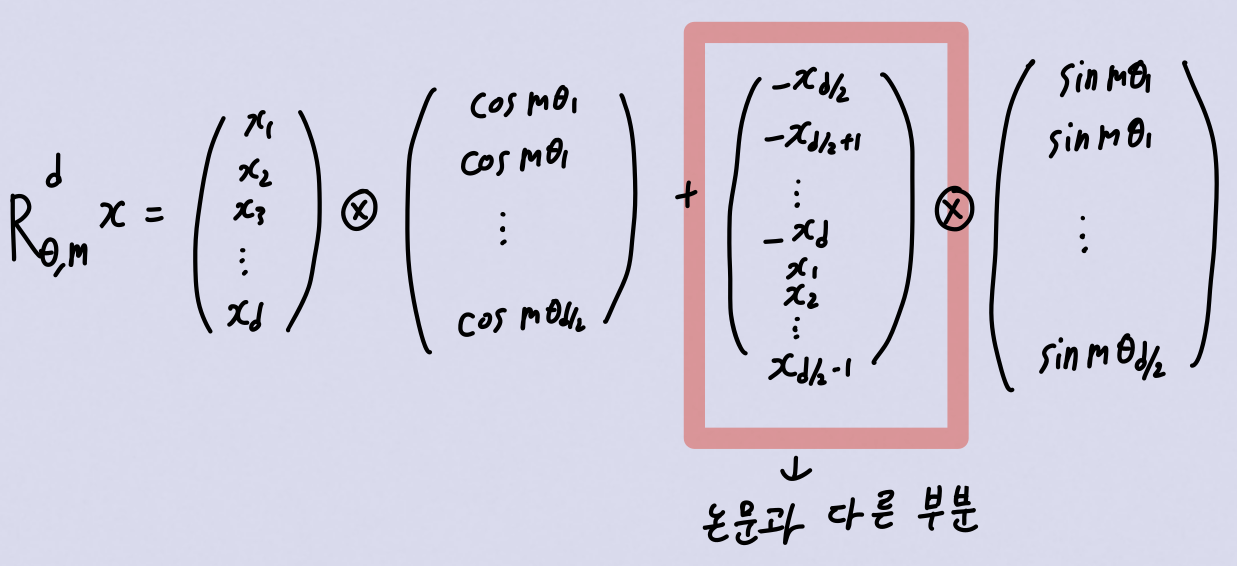 R^d_{θ,m} x = (x₁ x₂ x₃ ⋮ x_d) ⊗ (cos mθ₁ cos mθ₁ ⋮ cos mθ_{d/2}) + (-x_{d/2} -x_{d/2+1} ⋮ -x_d x₁ x₂ ⋮ x_{d/2-1}) ⊗ (sin mθ₁ sin mθ₁ ⋮ sin mθ_{d/2})
↓
논문과 다른 부분